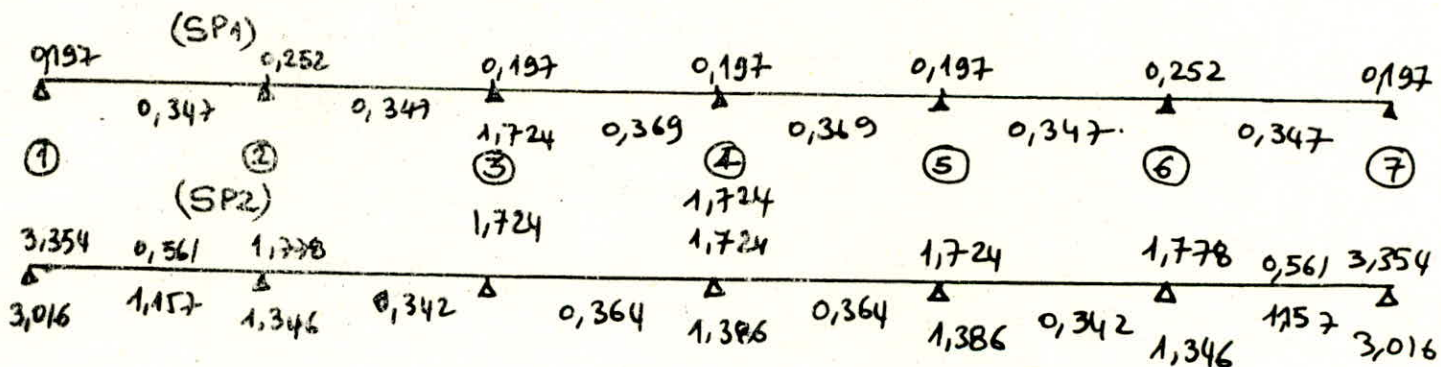 (SP1)
0,197 0,252 0,197 0,197 0,197 0,252 0,197
0,347 0,347 1,724 0,369 0,369 0,347 0,347
① ② ③ ④ ⑤ ⑥ ⑦
(SP2) 1,724 1,724
3,354 0,561 1,778 1,724 1,724 1,778 0,561 3,354
3,016 1,157 1,346 0,342 0,364 1,386 0,364 1,386 0,342 1,346 1157 3,016